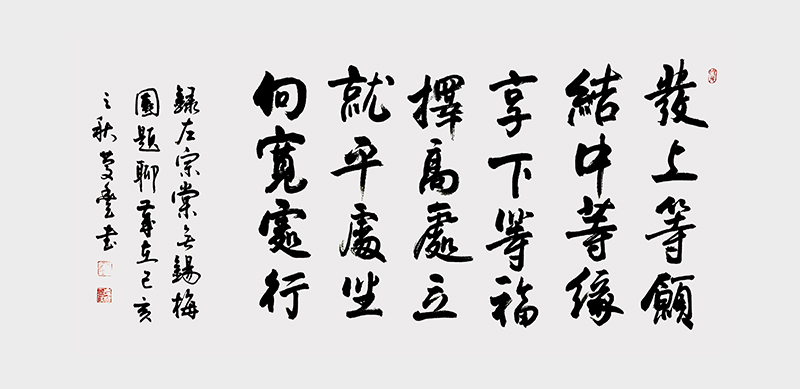 發上等願
結中等緣
享下等福
擇高處立
就平處坐
向寬處行
錄左宗棠無錫梅
園題聊歲在己亥
之秋